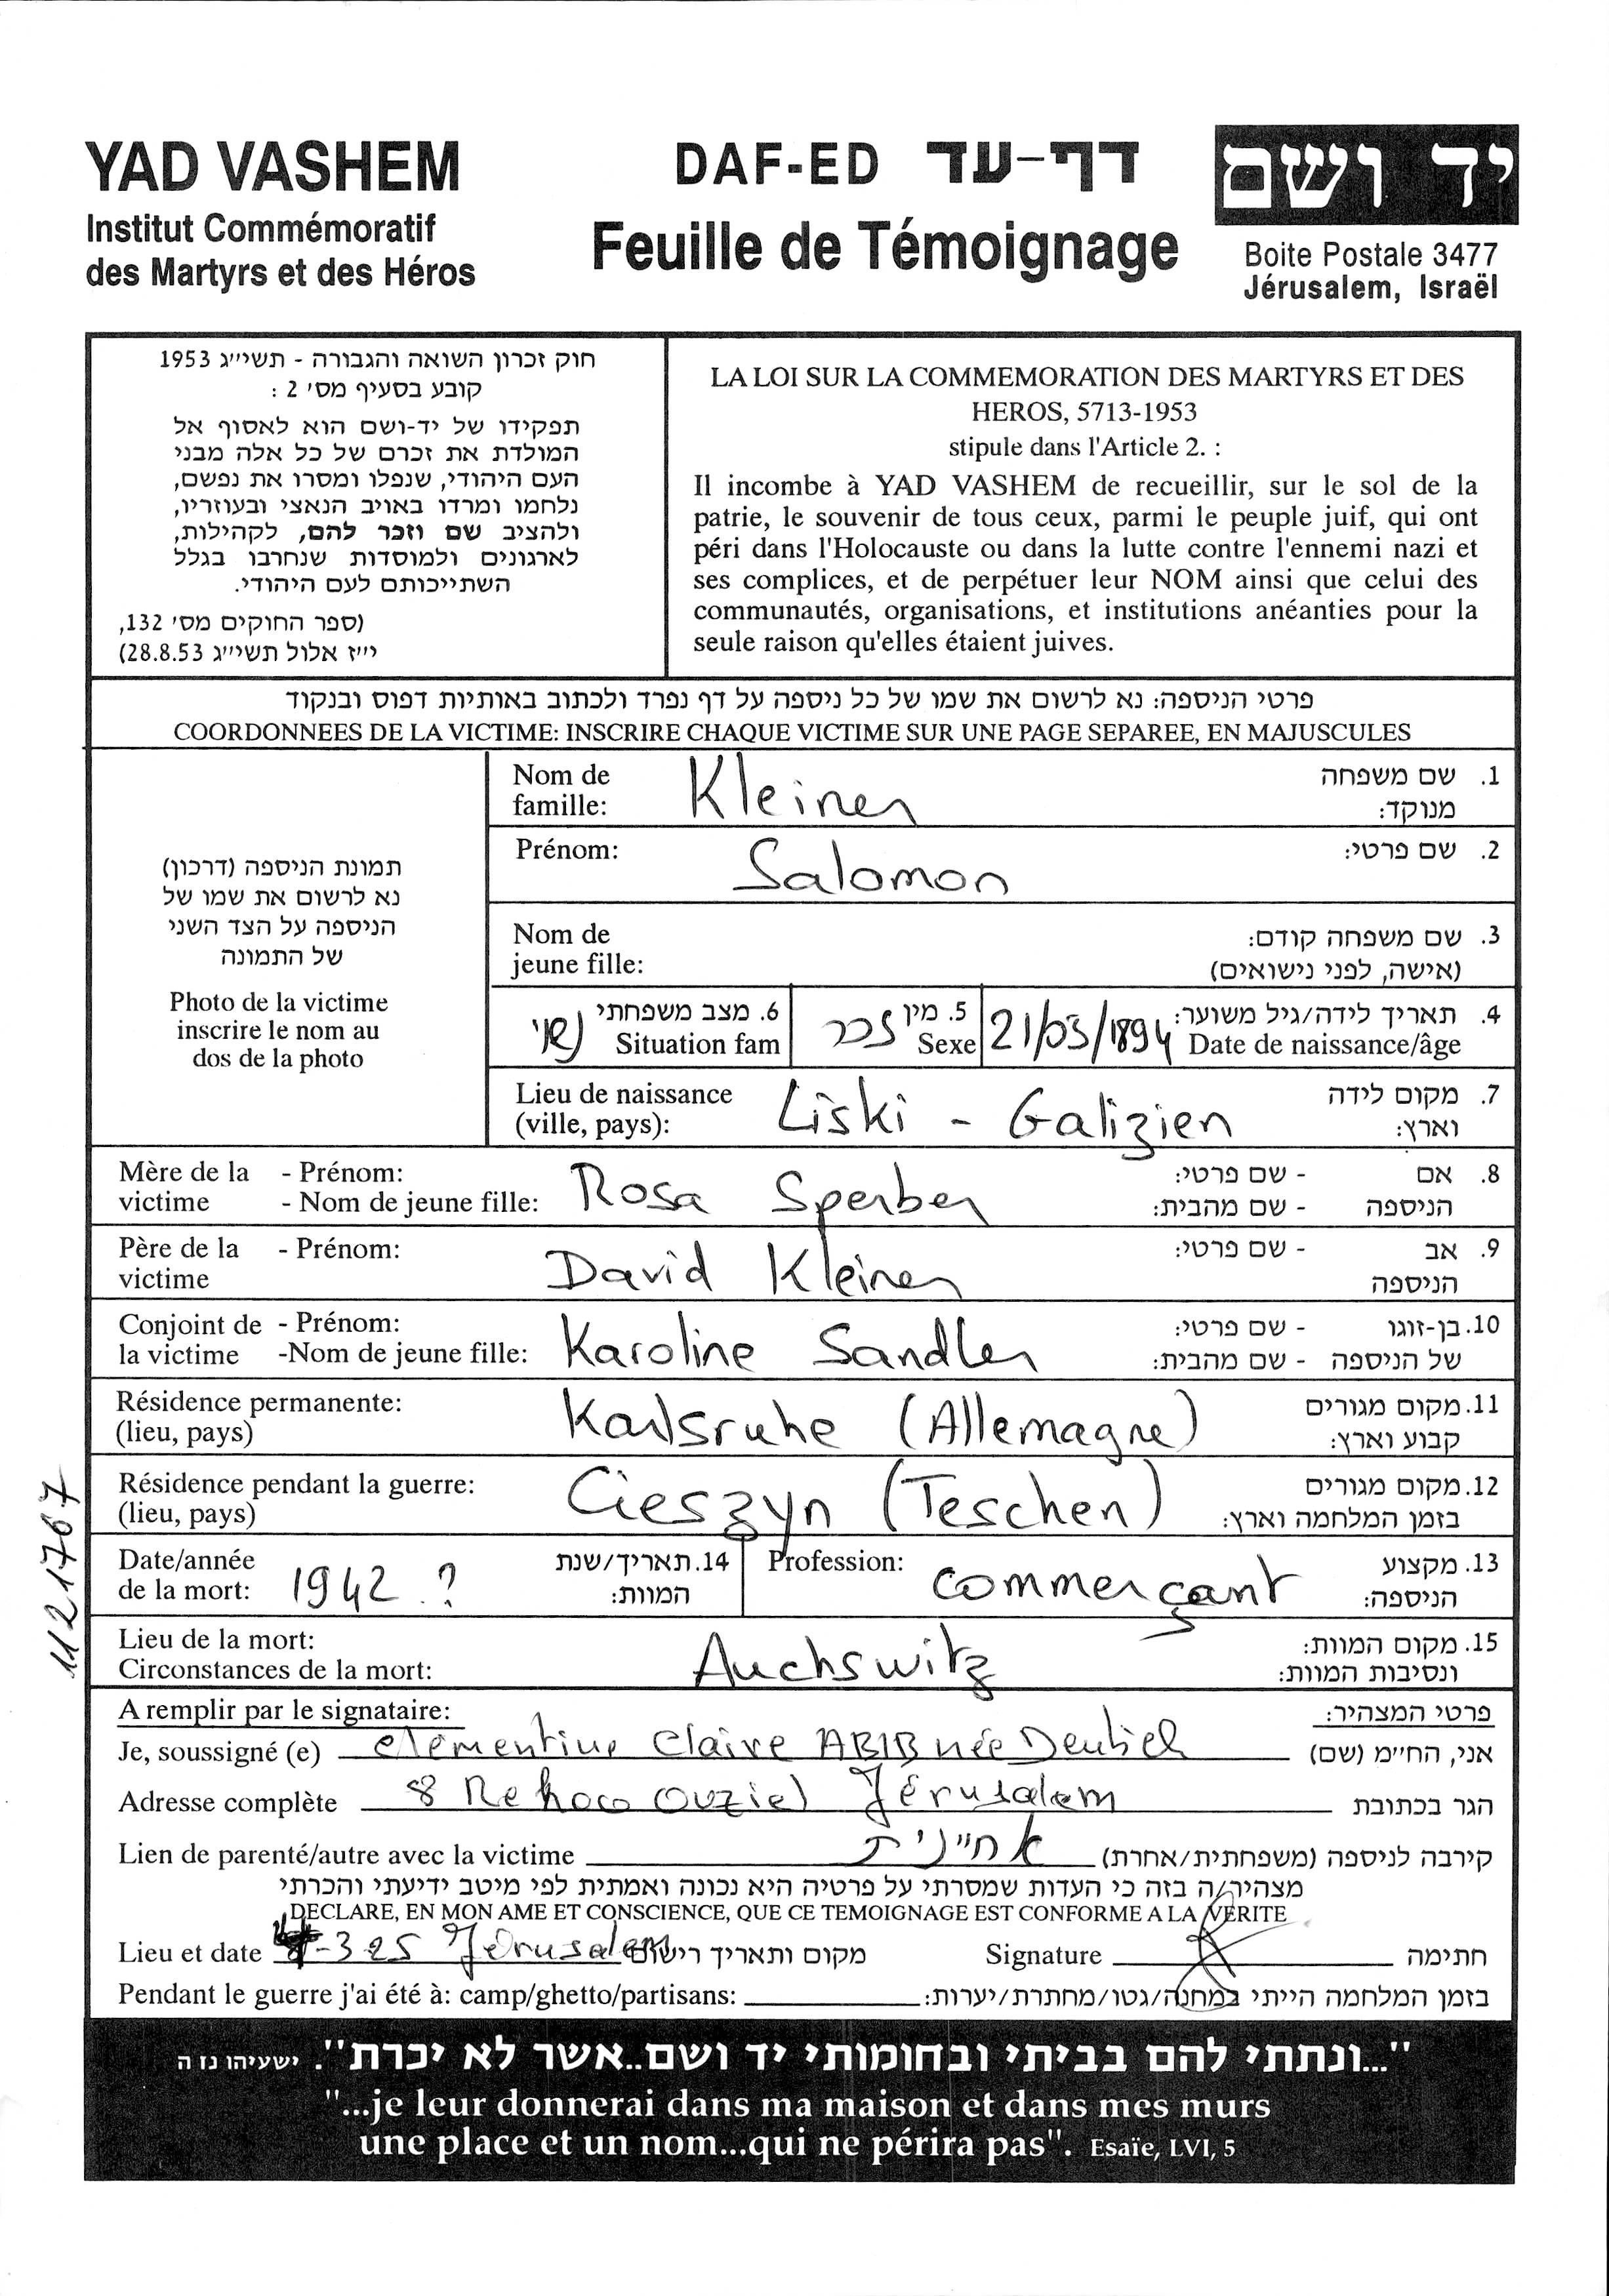 YAD VASHEM
Institut Commémoratif
des Martyrs et des Héros
DAF-ED דף-עד
Feuille de Témoignage
יד ושם
Boite Postale 3477
Jérusalem, Israël
חוק זכרון השואה והגבורה - תשי״ג 1953
קובע בסעיף מס׳ 2 :
תפקידו של יד-ושם הוא לאסוף אל
המולדת את זכרם של כל אלה מבני
העם היהודי, שנפלו ומסרו את נפשם,
נלחמו ומרדו באויב הנאצי ובעוזריו,
ולהציב שם וזכר להם, לקהילות,
לארגונים ולמוסדות שנחרבו בגלל
השתייכותם לעם היהודי.
(ספר החוקים מס׳ 132,
י״ז אלול תשי״ג 28.8.53)
LA LOI SUR LA COMMEMORATION DES MARTYRS ET DES
HEROS, 5713-1953
stipule dans l'Article 2. :
Il incombe à YAD VASHEM de recueillir, sur le sol de la
patrie, le souvenir de tous ceux, parmi le peuple juif, qui ont
péri dans l'Holocauste ou dans la lutte contre l'ennemi nazi et
ses complices, et de perpétuer leur NOM ainsi que celui des
communautés, organisations, et institutions anéanties pour la
seule raison qu'elles étaient juives.
פרטי הניספה: נא לרשום את שמו של כל ניספה על דף נפרד ולכתוב באותיות דפוס ובנקוד
COORDONNEES DE LA VICTIME: INSCRIRE CHAQUE VICTIME SUR UNE PAGE SEPAREE, EN MAJUSCULES
תמונת הניספה (דרכון)
נא לרשום את שמו של
הניספה על הצד השני
של התמונה
Photo de la victime
inscrire le nom au
dos de la photo
Nom de famille: Kleiner 1. שם משפחה מנוקד:
Prénom: Salomon 2. שם פרטי:
Nom de jeune fille: 3. שם משפחה קודם: (אישה, לפני נישואים)
נשוי 6. מצב משפחתי Situation fam
זכר 5. מין Sexe
21/03/1894 4. תאריך לידה/גיל משוער: Date de naissance/âge
Lieu de naissance (ville, pays): Liski - Galizien 7. מקום לידה וארץ:
Mère de la victime - Prénom: - Nom de jeune fille: Rosa Sperber 8. אם הניספה - שם פרטי: - שם מהבית:
Père de la victime - Prénom: David Kleiner 9. אב הניספה - שם פרטי:
Conjoint de la victime - Prénom: -Nom de jeune fille: Karoline Sandler 10. בן-זוגו של הניספה - שם פרטי: - שם מהבית:
Résidence permanente: (lieu, pays) Karlsruhe (Allemagne) 11. מקום מגורים קבוע וארץ:
Résidence pendant la guerre: (lieu, pays) Cieszyn (Teschen) 12. מקום מגורים בזמן המלחמה וארץ:
Date/année de la mort: 1942 ? 14. תאריך/שנת המוות:
Profession: commerçant 13. מקצוע הניספה:
Lieu de la mort: Circonstances de la mort: Auchswitz 15. מקום המוות: ונסיבות המוות:
1121767
A remplir par le signataire: פרטי המצהיר:
Je, soussigné (e) Clémentine Claire ABIB née Deutsch אני, החי״מ (שם)
Adresse complète 8 Rehoco Ouziel Jérusalem הגר בכתובת
Lien de parenté/autre avec la victime אחיינית קירבה לניספה (משפחתית/אחרת)
מצהיר/ה בזה כי העדות שמסרתי על פרטיה היא נכונה ואמתית לפי מיטב ידיעתי והכרתי
DECLARE, EN MON AME ET CONSCIENCE, QUE CE TEMOIGNAGE EST CONFORME A LA VERITE
Lieu et date -3 25 Jérusalem מקום ותאריך רישום Signature חתימה
Pendant le guerre j'ai été à: camp/ghetto/partisans: בזמן המלחמה הייתי במחנה/גטו/מחתרת/יערות:
"...ונתתי להם בביתי ובחומותי יד ושם..אשר לא יכרת". ישעיהו נז ה
"...je leur donnerai dans ma maison et dans mes murs
une place et un nom...qui ne périra pas". Esaïe, LVI, 5